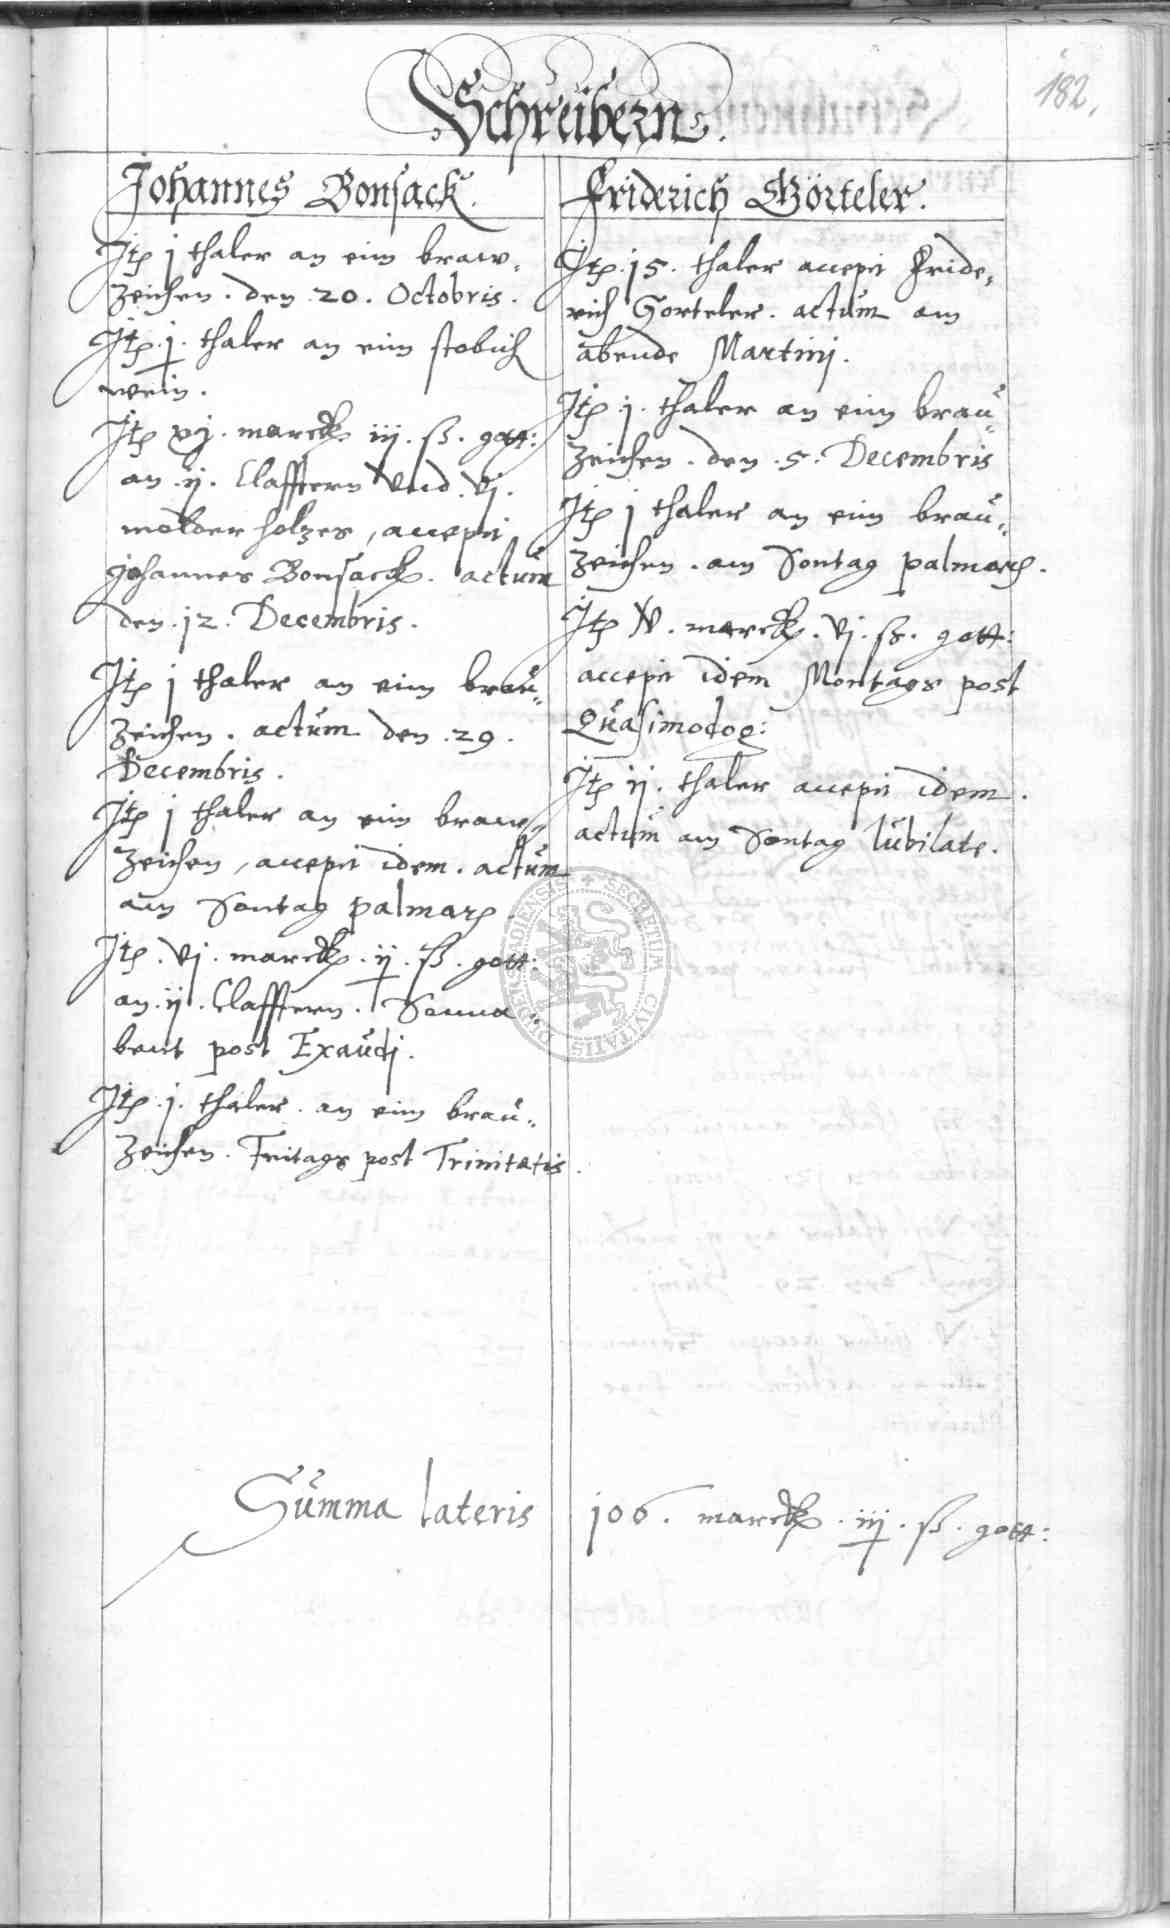 182.
Schreibern.
Johannes Bonsack.
Jtp j thaler an eim braw„
zeichen . den 20 . Octobris .
Jtp . j . thaler an eim stobich
wein .
Jtp xj . marck iij . ß . gott:
an . ij . Clafftern vnd . vj .
molder holzes , accepit
Johannes Bonsack . actum
den . 12 . Decembris .
Jtp j thaler an eim brau„
zeichen . actum den . 29 .
Decembris .
Jtp j thaler an eim braw„
zeichen , accepit idem . actum
am Sontag palmarp .
Jtp . vj . marck . ij . ß . gott:
an . ij . Clafftern . Sonna„
bent post Exaudj .
Jtp . j . thaler . an eim brau„
zeichen . Fritags post Trinitatis .
Friderich Görteler.
Jtp . 15 . thaler accepit Fride„
rich Gorteler . actum am
abende Martinj .
Jtp . j . thaler an eim brau„
zeichen . den . 5 . Decembris
Jtp j thaler an eim brau„
zeichen . am Sontag palmarp .
Jtp v . marck . vj . ß . gott:
accepit idem Montags post
Quasimodog:
Jtp ij . thaler accepit idem .
actum am Sontag Iubilate .
Summa lateris 106 . marck . iij . ß . gott:
SECRETUM CIVITATIS DUDERSTADIENSIS